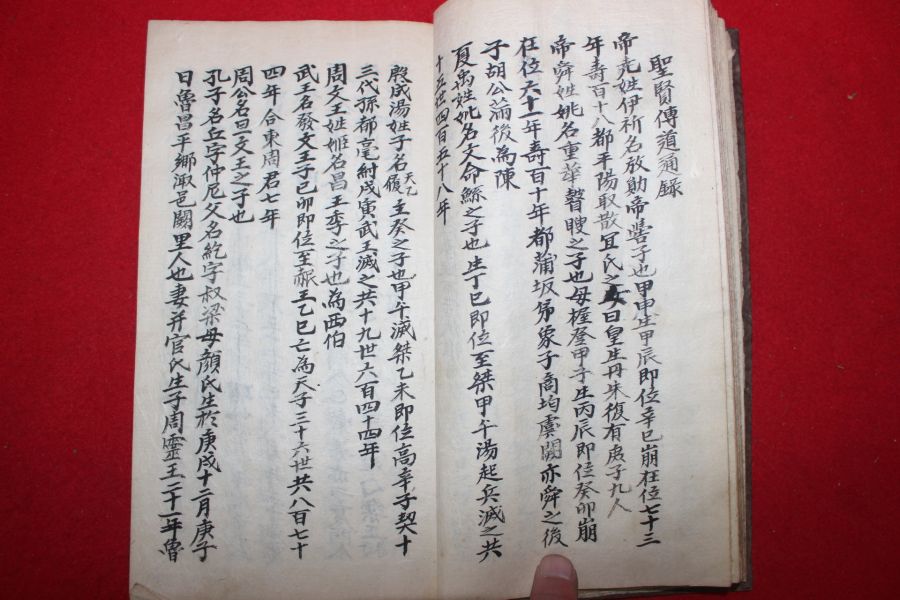 聖賢傳道通錄
帝堯姓伊祈名放勛帝嚳子也甲申生甲辰即位辛巳崩在位七十三
年壽百十八都平陽取散宜氏之女曰皇生丹朱復有庶子九人
帝舜姓姚名重華瞽瞍之子也母握登甲子生丙辰即位癸卯崩
在位六十一年壽百十年都蒲坂弟象子商均虞閼亦舜之後
子胡公滿後為陳
夏禹姓姒名文命鯀之子也生丁巳即位至桀甲午湯起兵滅之共
十五世四百五十八年
殷成湯姓子名履天乙主癸之子也甲午滅桀乙未即位高辛子契十
三代孫都亳紂戊寅武王滅之共十九世六百四十四年
周文王姓姬名昌王季之子也為西伯
武王名發文王子己卯即位至赧王乙巳亡為天子三十六世共八百七十
四年合東周君七年
周公名旦文王之子也
孔子名丘字仲尼父名紇字叔梁母顏氏生於庚戌十二月庚子
日魯昌平鄉陬邑闕里人也妻并官氏生子周靈王二十一年魯